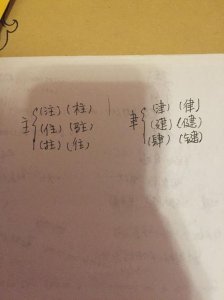 (注) (柱) (津) (律)
主{(住) (驻) 聿{(建) (健)
(拄) (往) (肆) (键)